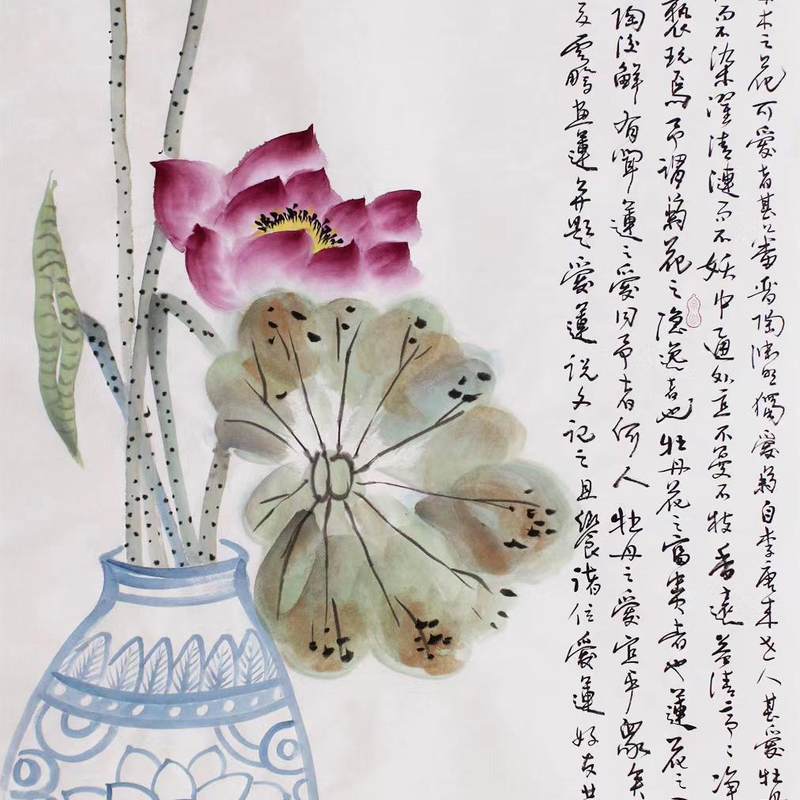 木之花可愛者甚蕃晋陶渊明獨愛菊自李唐来世人甚愛牡丹
而不染濯清漣而不妖中通外直不蔓不枝香遠益清亭亭净
褻玩焉予謂菊花之隐逸者也牡丹花之富贵者也蓮花之
陶後鮮有聞蓮之愛同予者何人牡丹之愛宜乎衆矣
雲鵬画蓮并題愛蓮説文记之且饗諸位愛蓮好友共